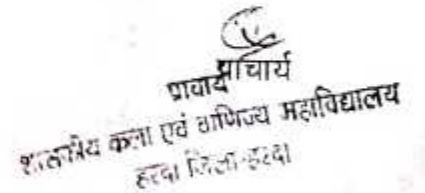 प्राचार्य
प्राचार्य
शासकीय कला एवं वाणिज्य महाविद्यालय
हरदा जिला-हरदा